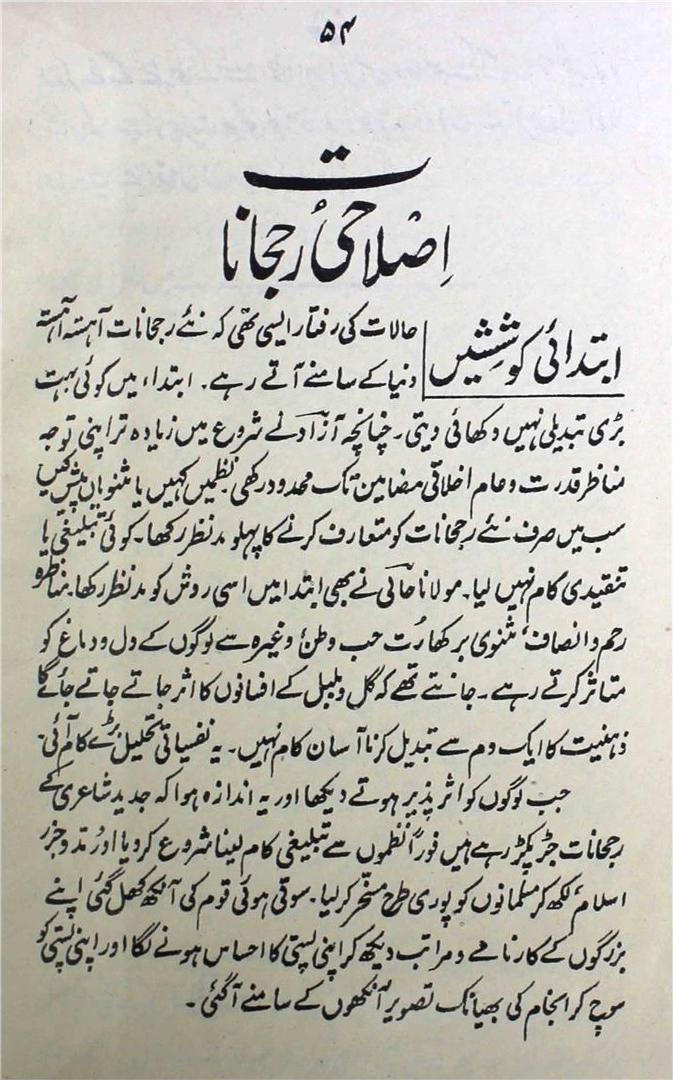 ۵۴
اِصلاحیٔ رجحانات
ابتدائی کوششیں
حالات کی رفتار ایسی تھی کہ نئے رجحانات آہستہ آہستہ
دنیا کے سامنے آتے رہے۔ ابتداء میں کوئی بہت
بڑی تبدیلی نہیں دکھائی دیتی۔ چنانچہ آزاد نے شروع میں زیادہ تر اپنی توجہ
مناظر قدرت و عام اخلاقی مضامین تک محدود رکھی نظمیں کہیں یا مثنویاں پیش کیں
سب میں صرف نئے رجحانات کو متعارف کرنے کا پہلو مدنظر رکھا۔ کوئی تبلیغی یا
تنقیدی کام نہیں لیا۔ مولانا حالی نے بھی ابتدا میں اسی روش کو مدنظر رکھا۔ مناظرہ
رحم و انصاف، مثنوی برکھارت حب وطن وغیرہ سے لوگوں کے دل و دماغ کو
متاثر کرتے رہے۔ جانتے تھے کہ گل و بلبل کے افسانوں کا اثر جاتے جاتے جائے گا
ذہنیت کا ایک دم سے تبدیل کرنا آسان کام نہیں۔ یہ نفسیاتی تحلیل بڑے کام آئی۔
جب لوگوں کو اثر پذیر ہوتے دیکھا اور یہ اندازہ ہوا کہ جدید شاعری کے
رجحانات جڑ پکڑ رہے ہیں فوراً نظموں سے تبلیغی کام لینا شروع کر دیا اور مدوجزر
اسلام لکھ کر مسلمانوں کو پوری طرح مسخر کر لیا۔ سوتی ہوئی قوم کی آنکھ کھل گئی اپنے
بزرگوں کے کارنامے و مراتب دیکھ کر اپنی پستی کا احساس ہونے لگا اور اپنی پستی کو
سوچ کر انجام کی بھیانک تصویر آنکھوں کے سامنے آگئی۔